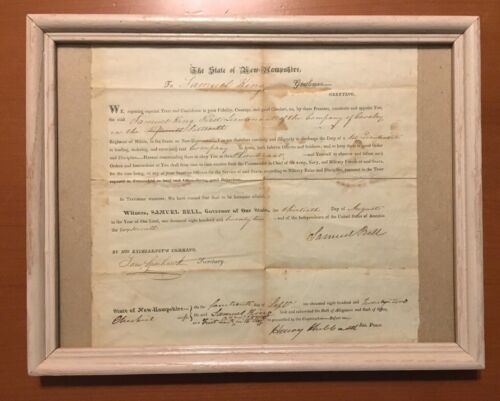 The State of New-Hampshire,
To Samuel King Gentleman
GREETING.
WE, reposing especial Trust and Confidence in your Fidelity, Courage, and good Conduct, do, by these Presents, constitute and appoint You,
the said Samuel King First Lieutenant of the Company of Cavalry
in the Regiment of Militia, in the State of New-Hampshire. You are therefore carefully and diligently to discharge the Duty of a
in leading, ordering, and exercising said Company in Arms, both inferior Officers and Soldiers, and to keep them in good Order
and Discipline—Hereby commanding them to obey You as their Lieutenant and Yourself to observe and follow such
Orders and Instructions as You shall from time to time receive from the Commander in Chief of the Army, Navy, and Military Forces of said State,
for the time being, or any of your Superior Officers for the Service of said State, according to Military Rules and Discipline, pursuant to the Trust
reposed in You
IN TESTIMONY WHEREOF, We have caused Our Seal to be hereunto affixed.
Witness, SAMUEL BELL, Governor of Our State, the thirtieth Day of August
in the Year of Our Lord, one thousand eight hundred and twenty two and of the Independence of the United States of America
the forty seventh
Samuel Bell
BY HIS EXCELLENCY'S COMMAND,
Secretary.
State of New-Hampshire—
Cheshire ss. On the one thousand eight hundred and twenty two
the said Samuel King took and subscribed the Oath of Allegiance and Oath of Office,
as prescribed by the Constitution—Before me,
Henry Hubbard Jus. Peace.